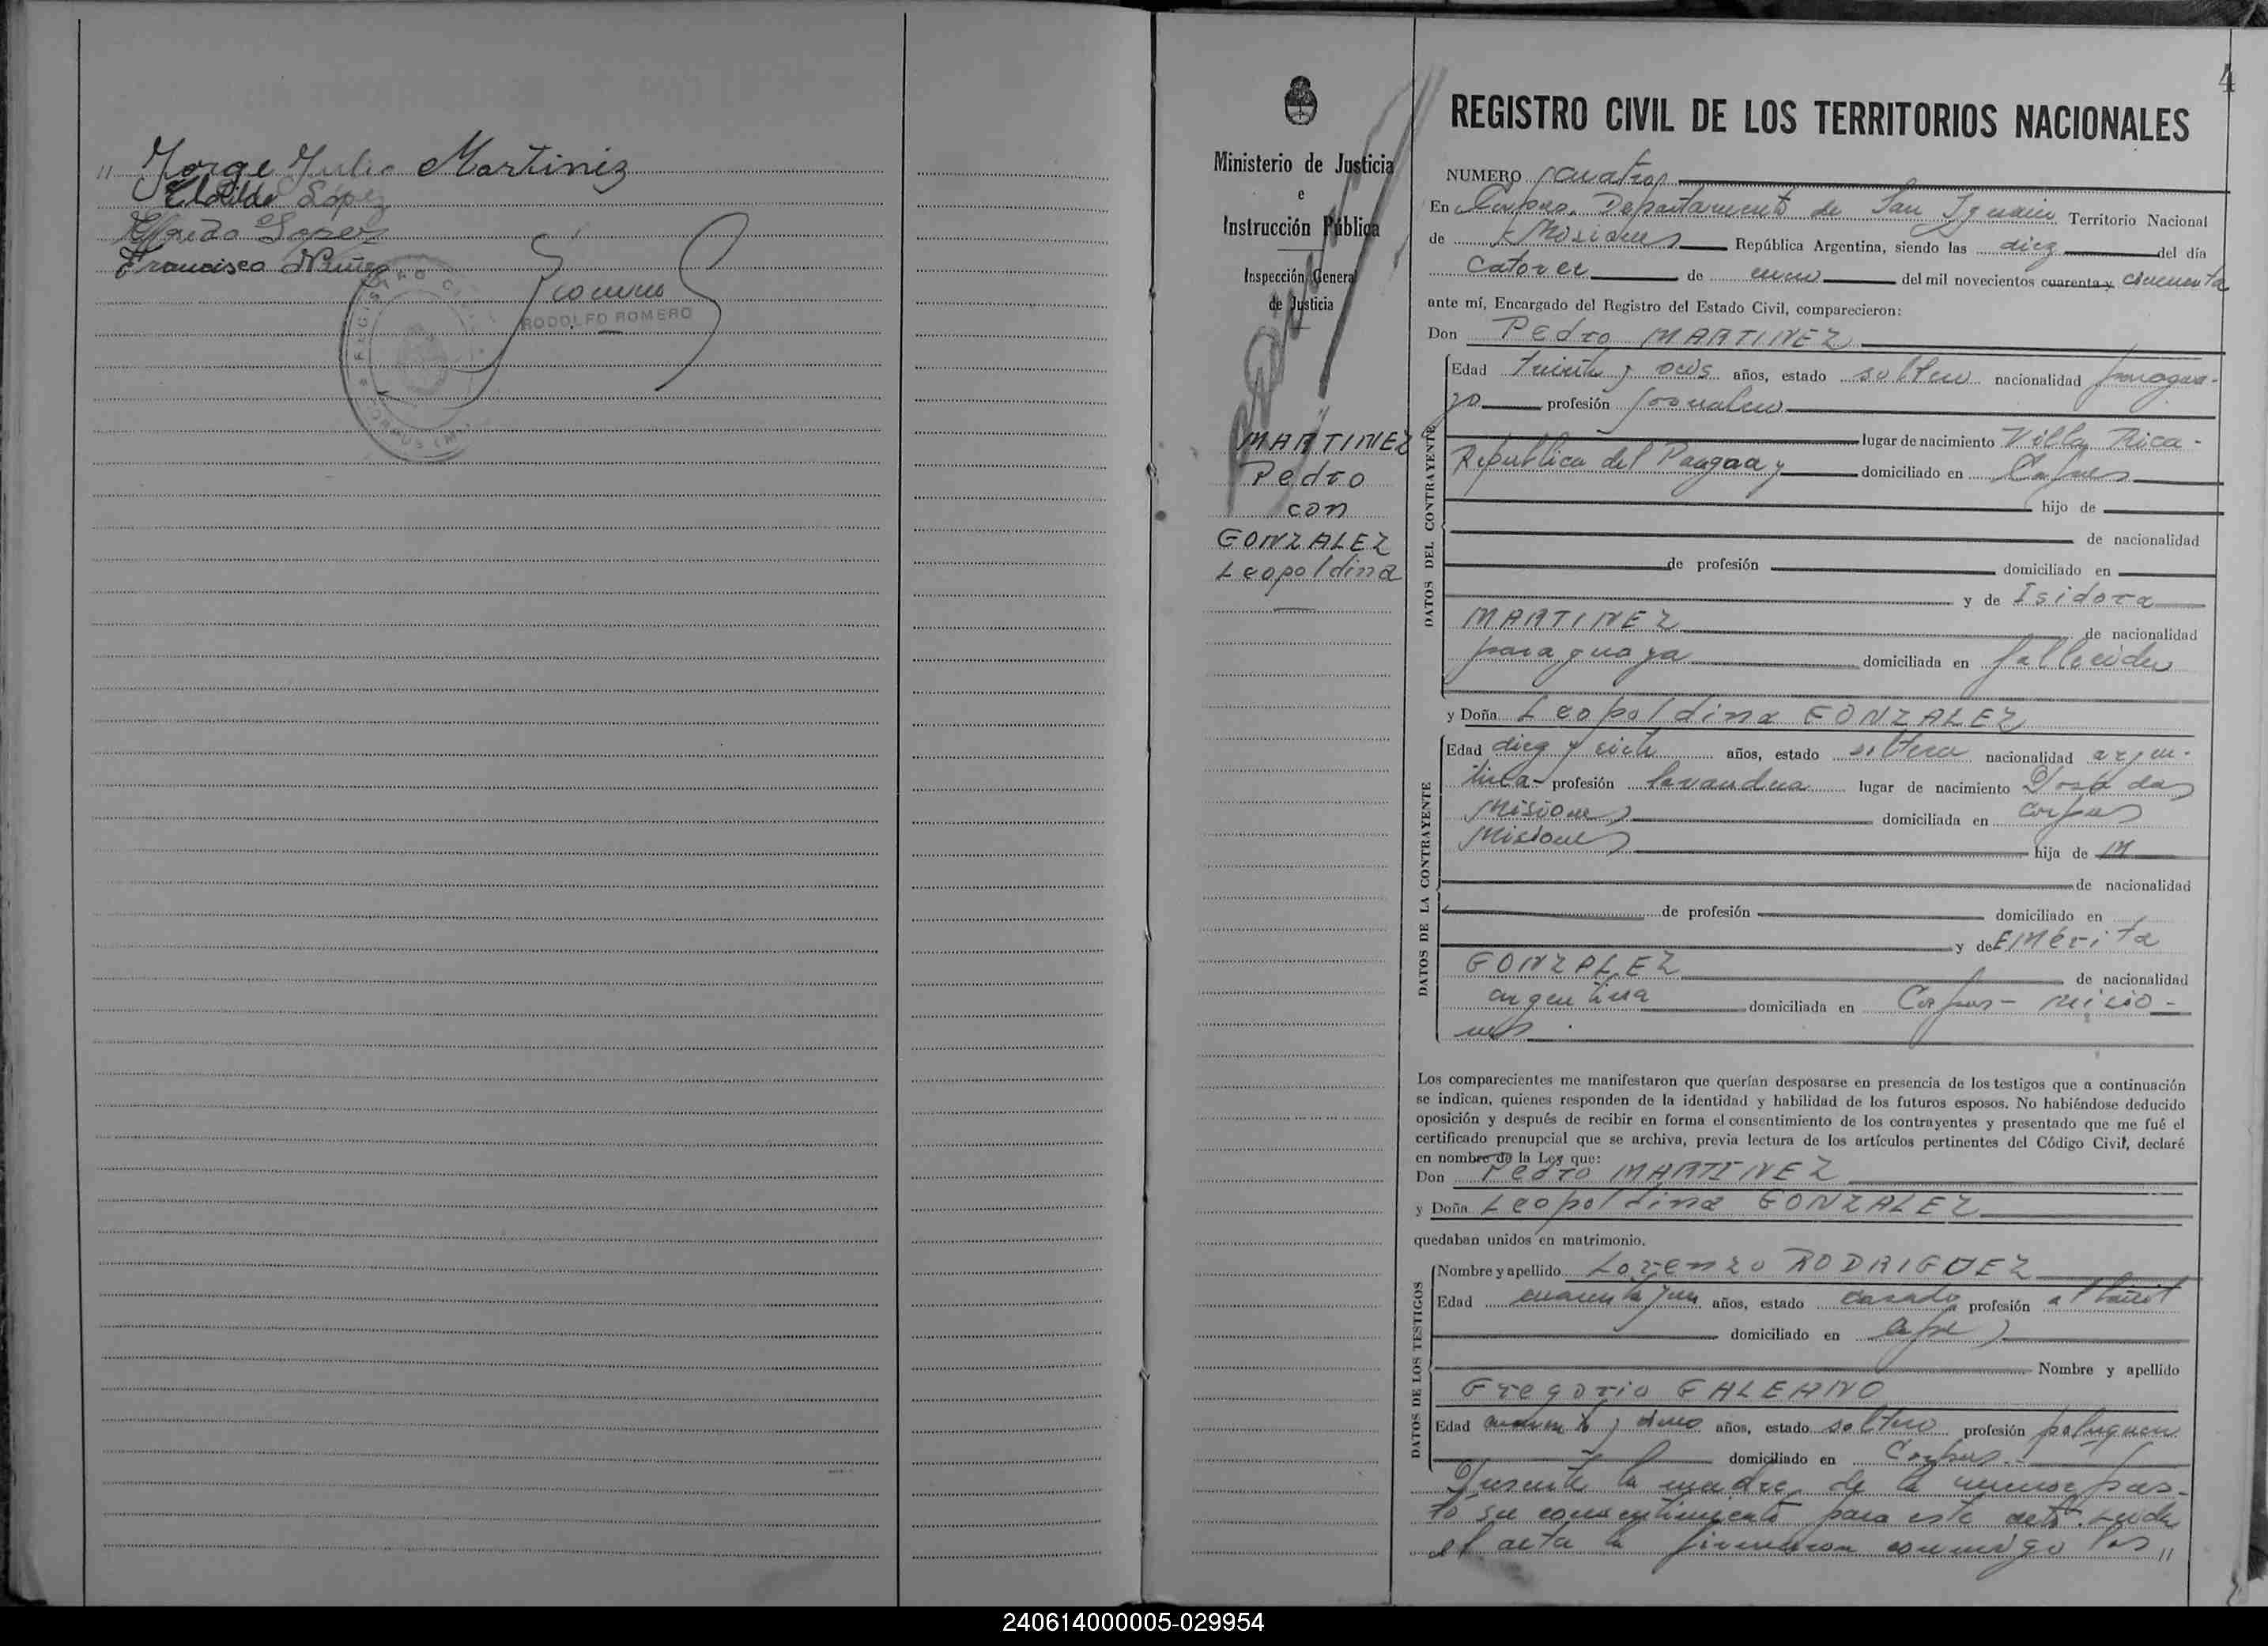 " Jorge Julio Martinez
Clotilde López
Alfredo Lopez
Francisco Nuñez
Romero
RODOLFO ROMERO
REGISTRO CIVIL
CORPUS (Mnes.)
4
Ministerio de Justicia
e
Instrucción Pública
Inspección General
de Justicia
MARTINEZ
Pedro
con
GONZALEZ
Leopoldina
REGISTRO CIVIL DE LOS TERRITORIOS NACIONALES
NUMERO cuatro
En Corpus, Departamento de San Ignacio Territorio Nacional
de Misiones República Argentina, siendo las diez del día
catorce de enero del mil novecientos cuarenta y cincuenta
ante mí, Encargado del Registro del Estado Civil, comparecieron:
Don Pedro MARTINEZ
DATOS DEL CONTRAYENTE
Edad treinta y ocho años, estado soltero nacionalidad paragua-
yo profesión jornalero
lugar de nacimiento Villa Rica-
Republica del Paraguay domiciliado en Corpus
hijo de
de nacionalidad
de profesión domiciliado en
y de Isidora
MARTINEZ de nacionalidad
paraguaya domiciliada en fallecida
y Doña Leopoldina GONZALEZ
DATOS DE LA CONTRAYENTE
Edad diez y siete años, estado soltera nacionalidad argen-
tina- profesión lavandera lugar de nacimiento Posadas
Misiones domiciliada en Corpus
Misiones hija de
de nacionalidad
de profesión domiciliado en
y de Emérita
GONZALEZ de nacionalidad
argentina domiciliada en Corpus- Misio-
nes.
Los comparecientes me manifestaron que querían desposarse en presencia de los testigos que a continuación
se indican, quienes responden de la identidad y habilidad de los futuros esposos. No habiéndose deducido
oposición y después de recibir en forma el consentimiento de los contrayentes y presentado que me fué el
certificado prenupcial que se archiva, previa lectura de los artículos pertinentes del Código Civil, declaré
en nombre de la Ley que:
Don Pedro MARTINEZ
y Doña Leopoldina GONZALEZ
quedaban unidos en matrimonio.
DATOS DE LOS TESTIGOS
Nombre y apellido Lorenzo RODRIGUEZ
Edad cuarenta y un años, estado casado profesión albañil
domiciliado en Corpus
Nombre y apellido
Gregorio GALEANO
Edad cuarenta y cinco años, estado soltero profesión peluquero
domiciliado en Corpus.
Presente la madre de la menor pres-
tó su consentimiento para este acto. Leida
el acta la firmaron conmigo los "
240614000005-029954